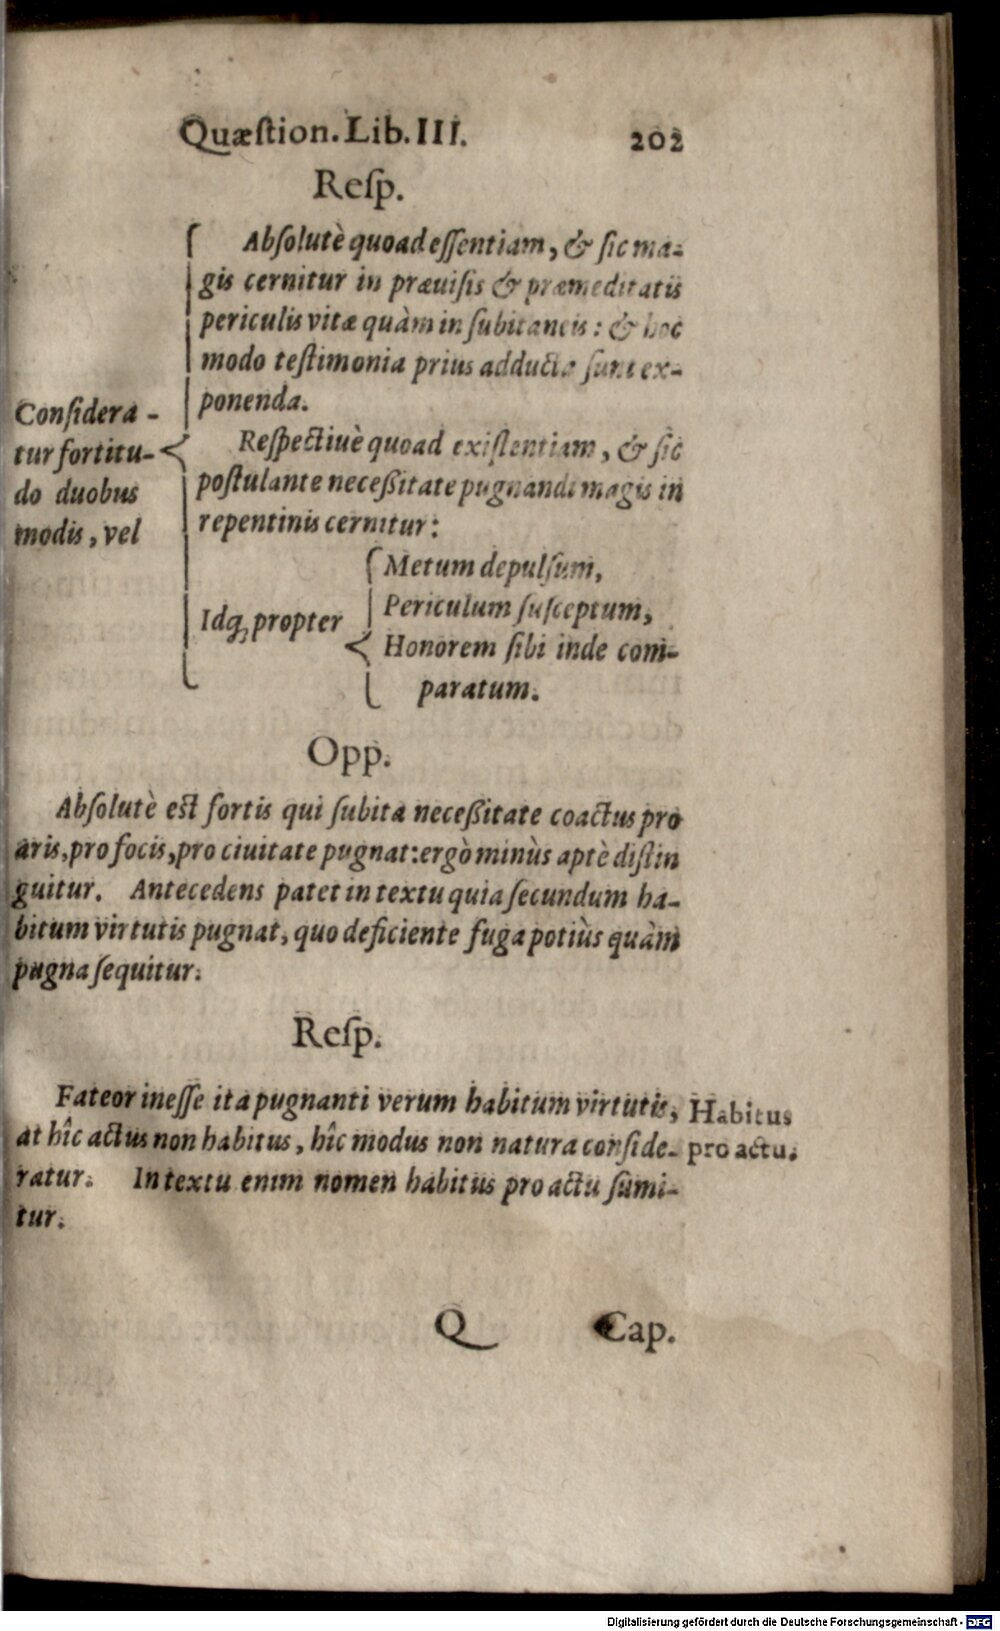 Quæſtion. Lib. III. 202
Reſp.
Conſidera-
tur fortitu-
do duobus
modis, vel
Abſolutè quoad eſſentiam, & ſic ma-
gis cernitur in præuiſis & præmeditatis
periculis vitæ quàm in ſubitaneis: & hoc
modo teſtimonia prius adducta ſunt ex-
ponenda.
Reſpectiuè quoad exiſtentiam, & ſic
poſtulante neceßitate pugnandi magis in
repentinis cernitur:
Idq́ꝫ propter
Metum depulſum,
Periculum ſuſceptum,
Honorem ſibi inde com-
paratum.
Opp.
Abſolutè eſt fortis qui ſubita neceßitate coactus pro
aris, pro focis, pro ciuitate pugnat: ergò minùs aptè diſtin
guitur. Antecedens patet in textu quia ſecundum ha-
bitum virtutis pugnat, quo deficiente fuga potiùs quàm
pugna ſequitur.
Reſp.
Fateor ineſſe ita pugnanti verum habitum virtutis,
at hîc actus non habitus, hîc modus non natura conſide-
ratur. In textu enim nomen habitus pro actu ſumi-
tur.
Habitus
pro actu.
Q Cap.
Digitalisierung gefördert durch die Deutsche Forschungsgemeinschaft - DFG